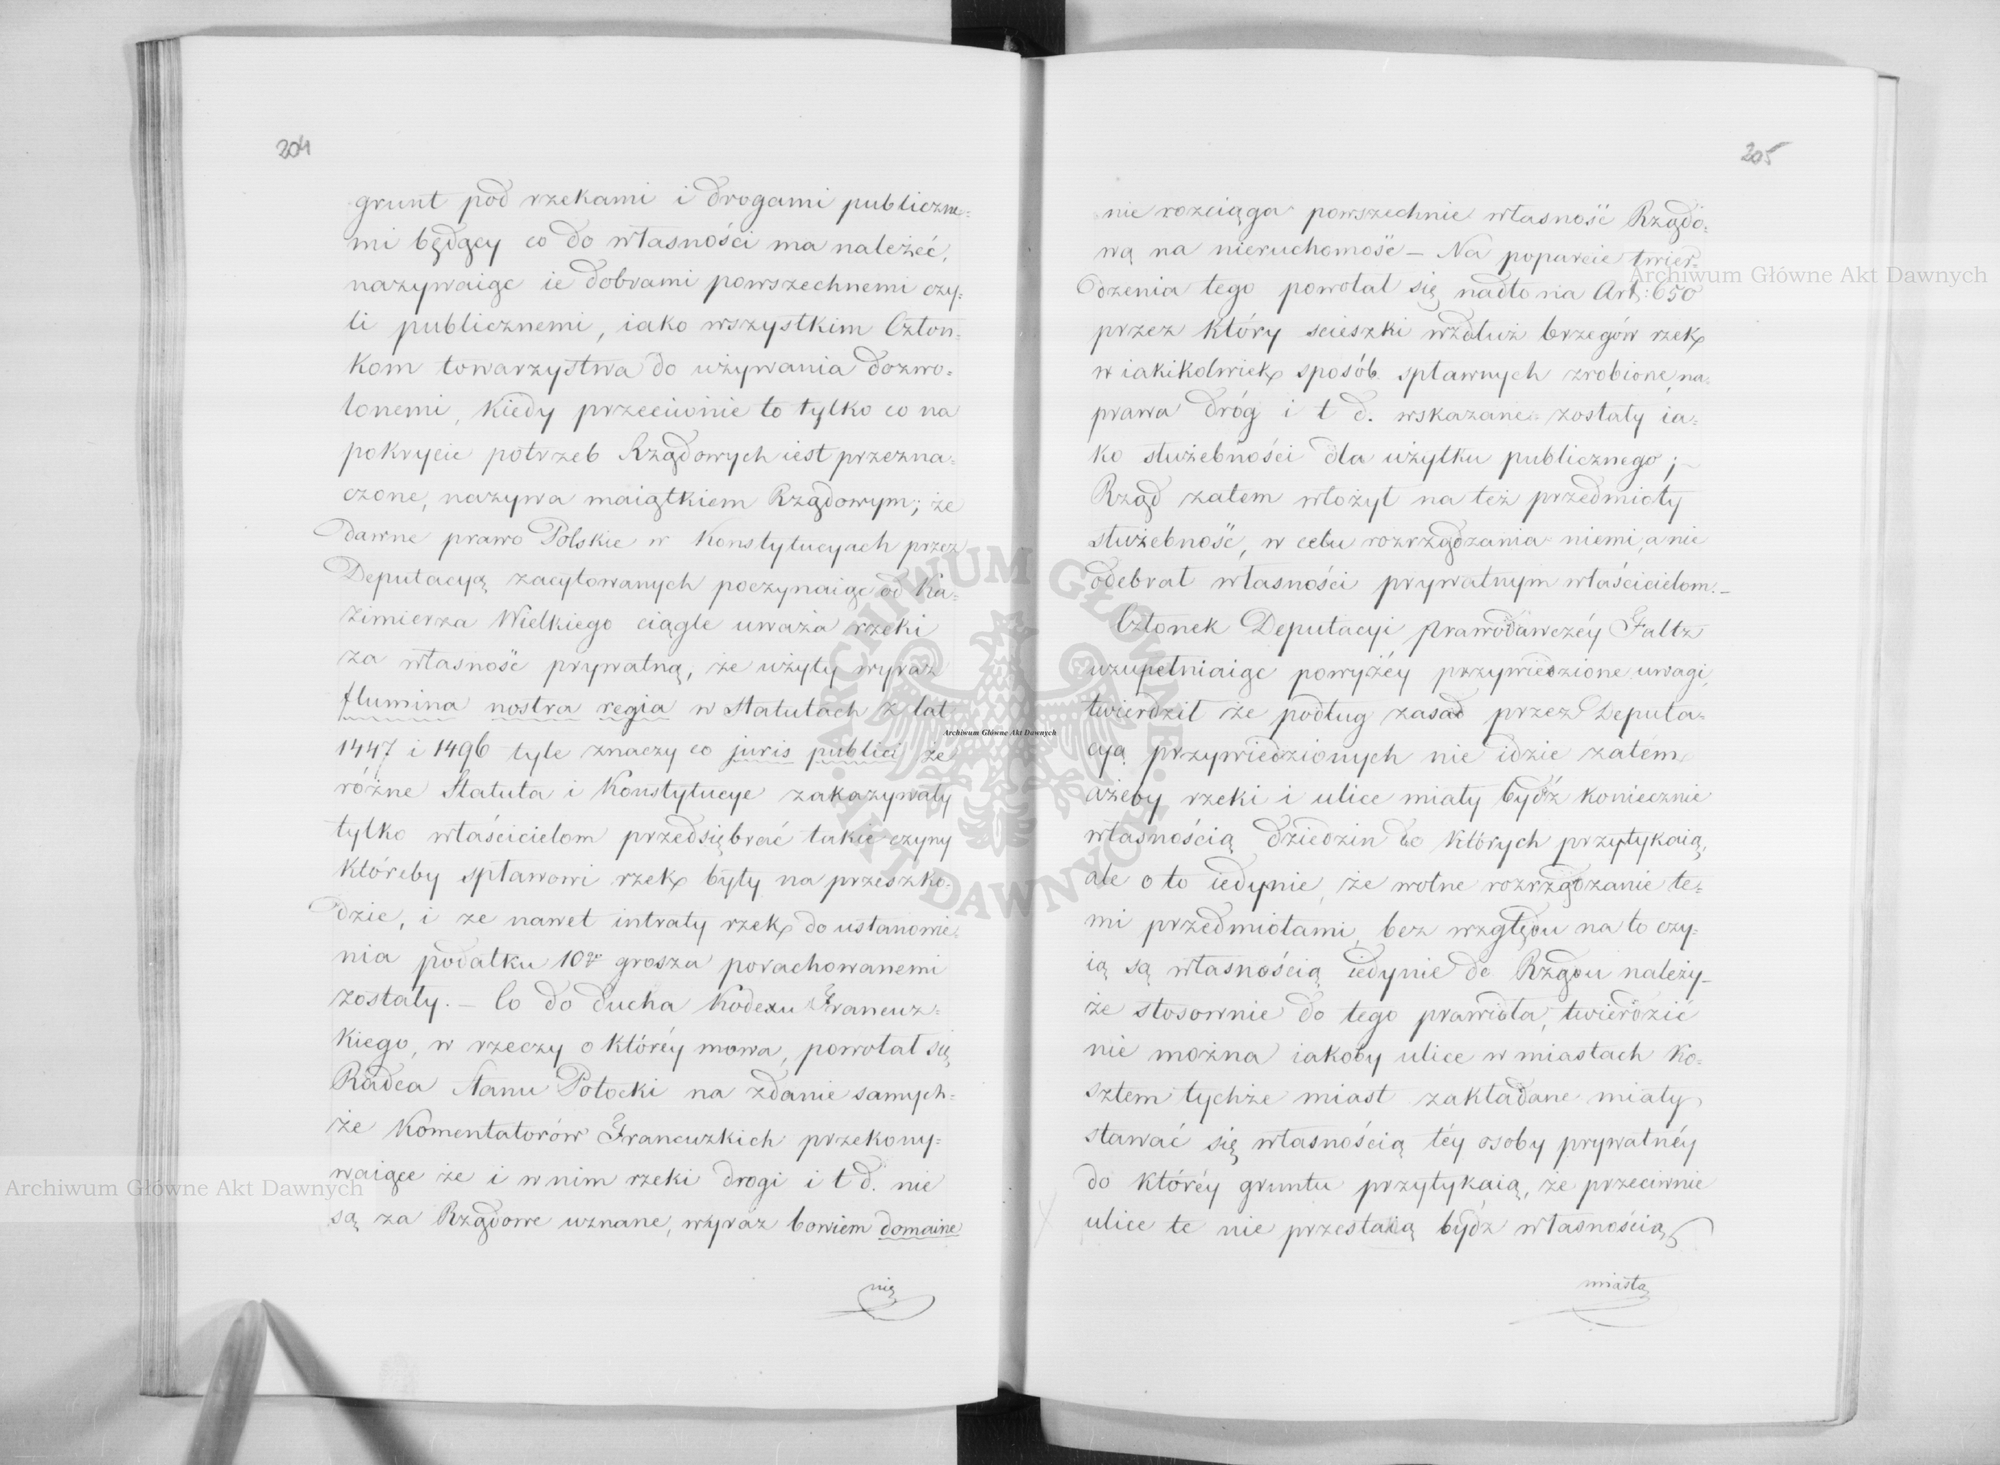 204
grunt pod rzekami i drogami publiczne-
mi będący co do własności ma należeć,
nazywaiąc ie dobrami powszechnemi czy-
li publicznemi, iako wszystkim Człon-
kom towarzystwa do używania dozwo-
lonemi, kiedy przeciwnie to tylko co na
pokrycie potrzeb Rządowych iest przezna-
czone, nazywa maiątkiem Rządowym; że
dawne prawo Polskie w Konstytucyach przez
Deputacyą zacytowanych poczynaiąc od Ka-
zimierza Wielkiego ciągle uważa rzeki
za własność prywatną, że użyty wyraz
flumina nostra regia w Statutach z lat
1447 i 1496 tyle znaczy co juris publici że
różne Statuta i Konstytucye zakazywały
tylko właścicielom przedsiębrać takie czyny
któreby spławowi rzek były na przeszko-
dzie, i że nawet intraty rzek do ustanowie-
nia podatku 10go grosza porachowanemi
zostały. – Co do ducha Kodexu Francuz-
kiego, w rzeczy o któréy mowa, powołał się
Radca Stanu Potocki na zdanie samych-
że Komentatorów Francuzkich przekony-
waiące że i w nim rzeki drogi i t d. nie
są za Rządowe uznane, wyraz bowiem domaine
nie
205
nie rozciąga powszechnie własność Rządo-
wą na nieruchomość – Na poparcie twier-
dzenia tego powołał się nadto na Art: 650
przez który scieszki wzdłuż brzegów rzek
w iakikolwiek sposób spławnych zrobione, na-
prawa dróg i t d. wskazane zostały ia-
ko służebności dla użytku publicznego;
Rząd zatem włożył na też przedmioty
służebność, w celu rozrządzania niemi, a nie
odebrał własności prywatnym właścicielom. –
Członek Deputacyi prawodawczéy Faltz
uzupełniaiąc powyżéy przywiedzione uwagi,
twierdził że podług zasad przez Deputa-
cyą przywiedzionych nie idzie zatém
ażeby rzeki i ulice miały bydź koniecznie
własnością dziedzin do których przytykaią,
ale o to iedynie, że wolne rozrządzanie te-
mi przedmiotami, bez względu na to czy-
ią są własnością iedynie do Rządu należy –
że stosownie do tego prawidła, twierdzić
nie można iakoby ulice w miastach ko-
sztem tychże miast zakładane miały
stawać się własnością téy osoby prywatnéy
do któréy gruntu przytykaią, że przeciwnie
ulice te nie przestaią bydź własnością
miasta
Archiwum Główne Akt Dawnych
Archiwum Główne Akt Dawnych
Archiwum Główne Akt Dawnych
ARCHIWUM GŁÓWNE AKT DAWNYCH